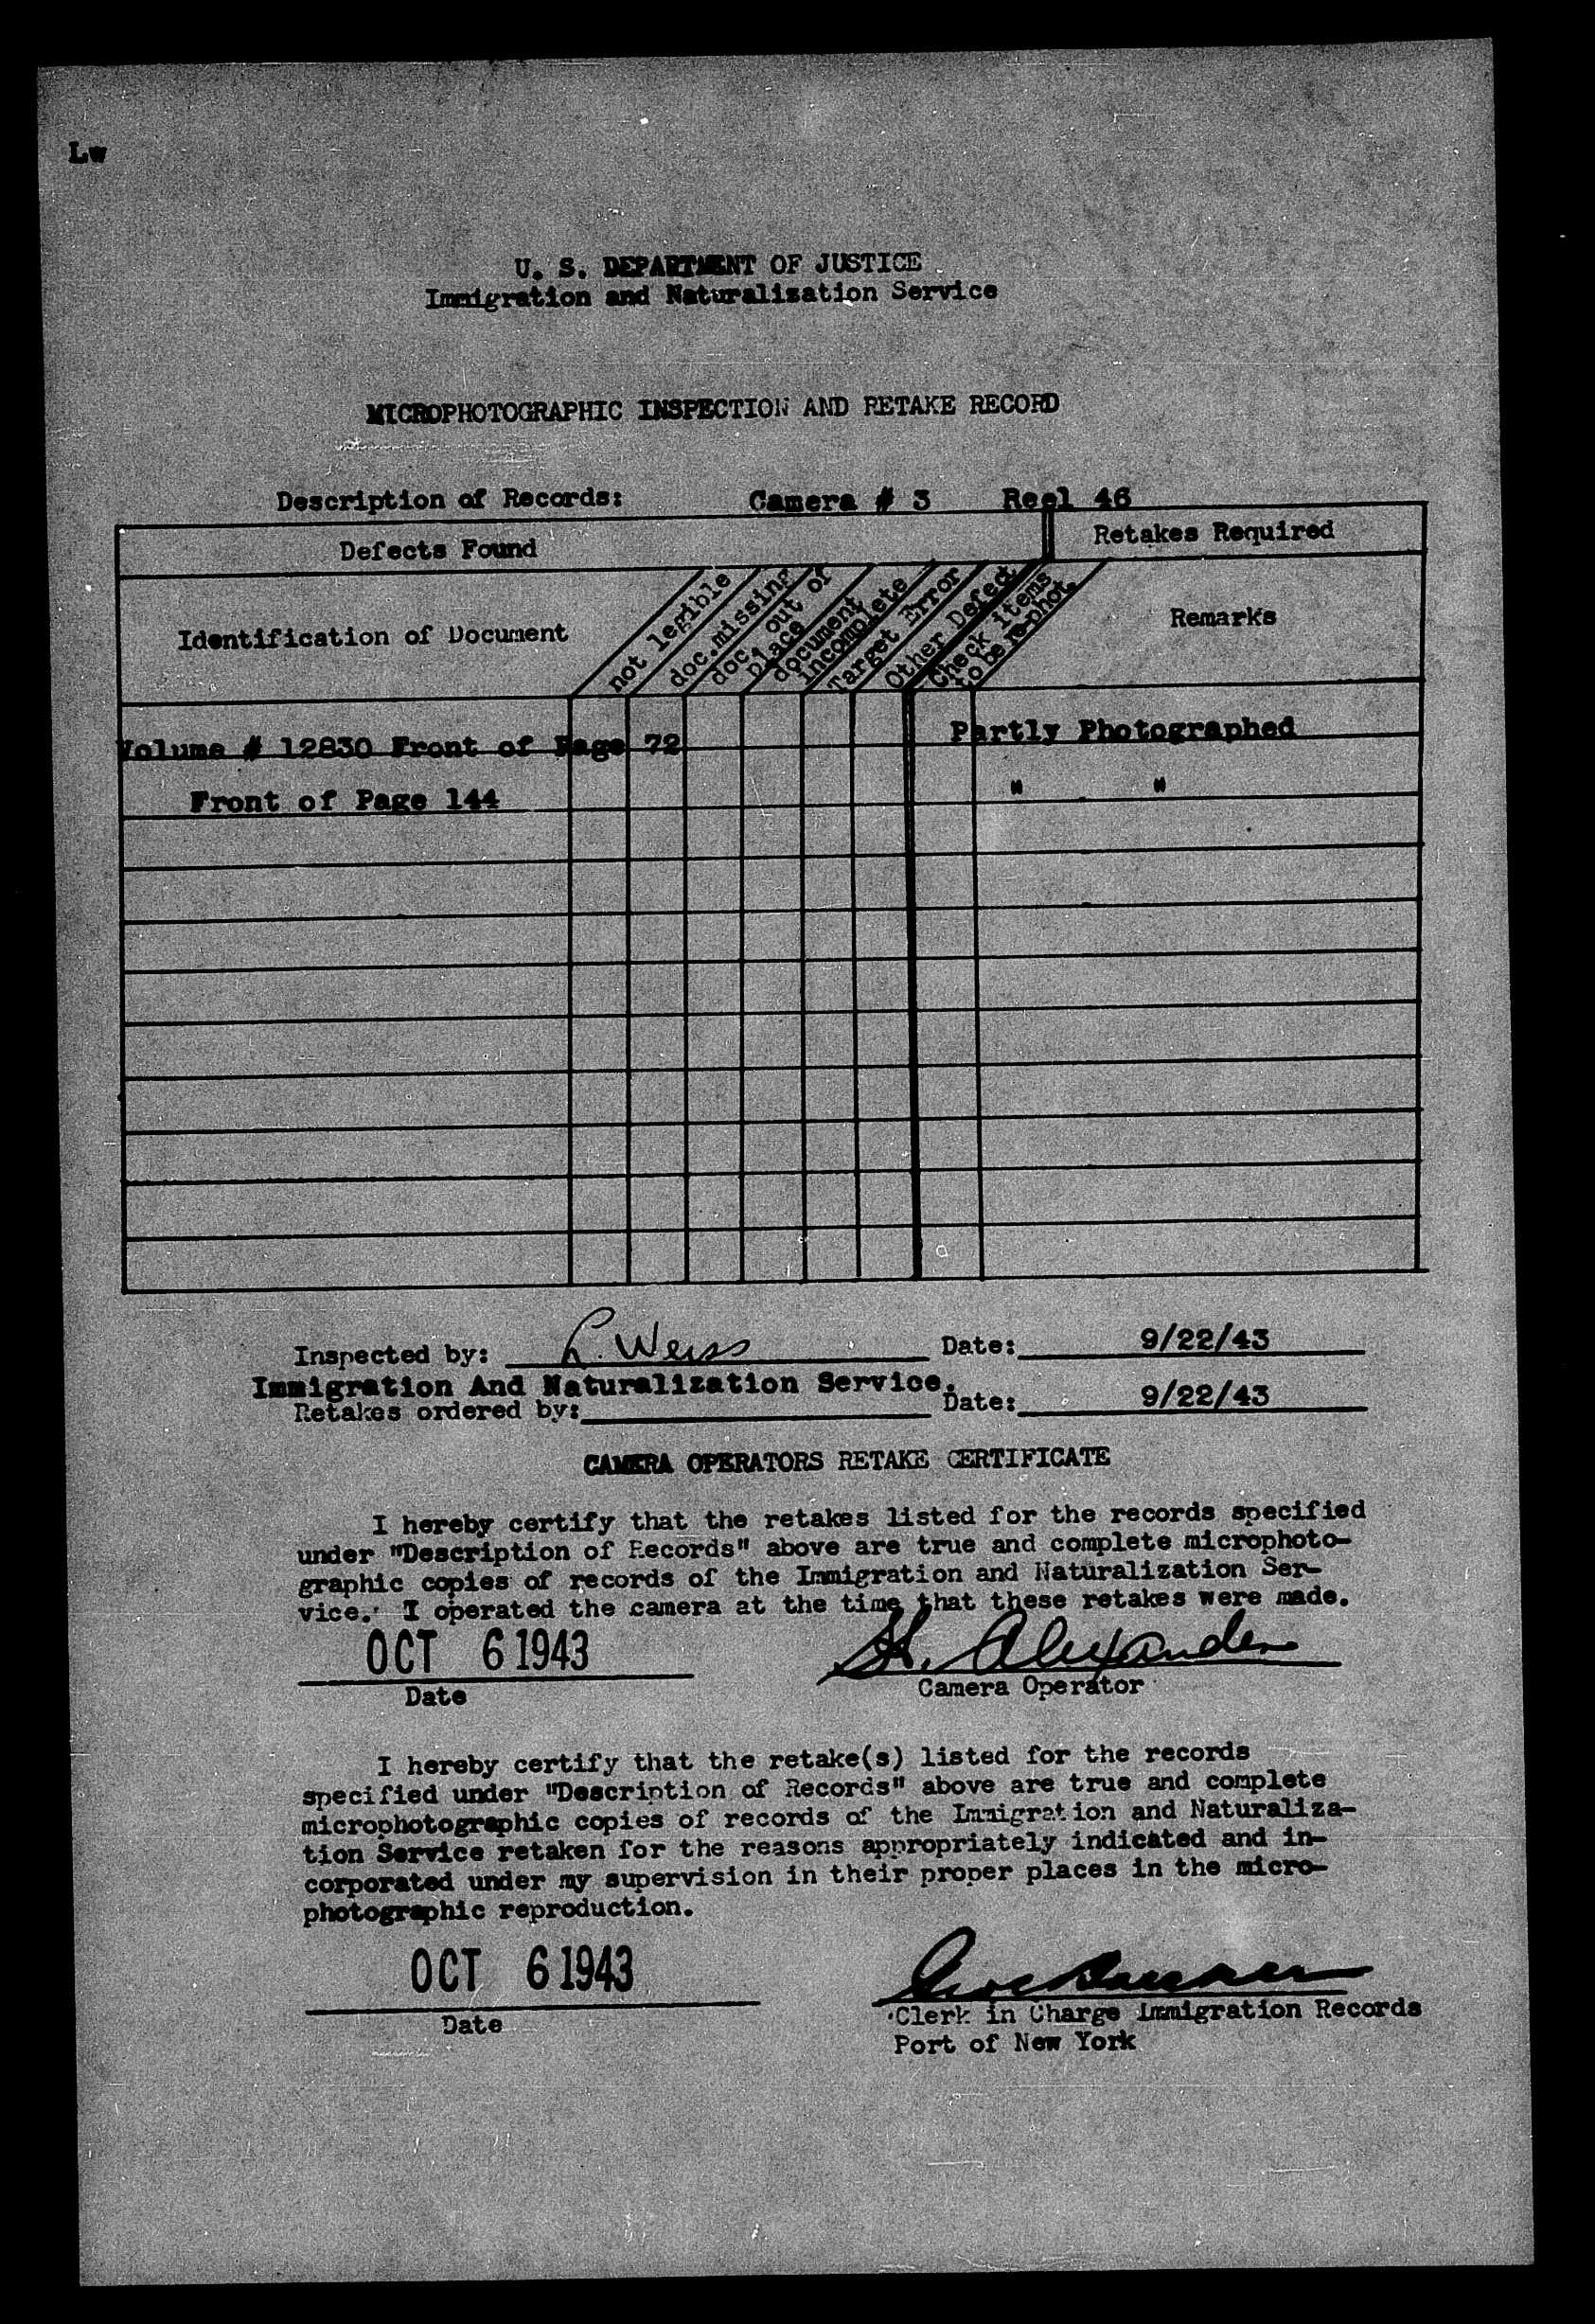 Lw
U. S. DEPARTMENT OF JUSTICE
Immigration and Naturalization Service
MICROPHOTOGRAPHIC INSPECTION AND RETAKE RECORD
Description of Records: Camera # 3 Reel 46
Defects Found
Retakes Required
Identification of Document
not legible
doc.missing
doc. out of
place
document
incomplete
Target Error
Other Defect
Check items
to be re-phot.
Remarks
Volume # 12830 Front of Page 72 Partly Photographed
Front of Page 144 " "
Inspected by: L. Weiss Date: 9/22/43
Immigration And Naturalization Service.
Retakes ordered by: Date: 9/22/43
CAMERA OPERATORS RETAKE CERTIFICATE
I hereby certify that the retakes listed for the records specified
under "Description of Records" above are true and complete microphoto-
graphic copies of records of the Immigration and Naturalization Ser-
vice. I operated the camera at the time that these retakes were made.
OCT 6 1943 H. Alexander
Date Camera Operator
I hereby certify that the retake(s) listed for the records
specified under "Description of Records" above are true and complete
microphotographic copies of records of the Immigration and Naturaliza-
tion Service retaken for the reasons appropriately indicated and in-
corporated under my supervision in their proper places in the micro-
photographic reproduction.
OCT 6 1943
Date
Clerk in Charge Immigration Records
Port of New York